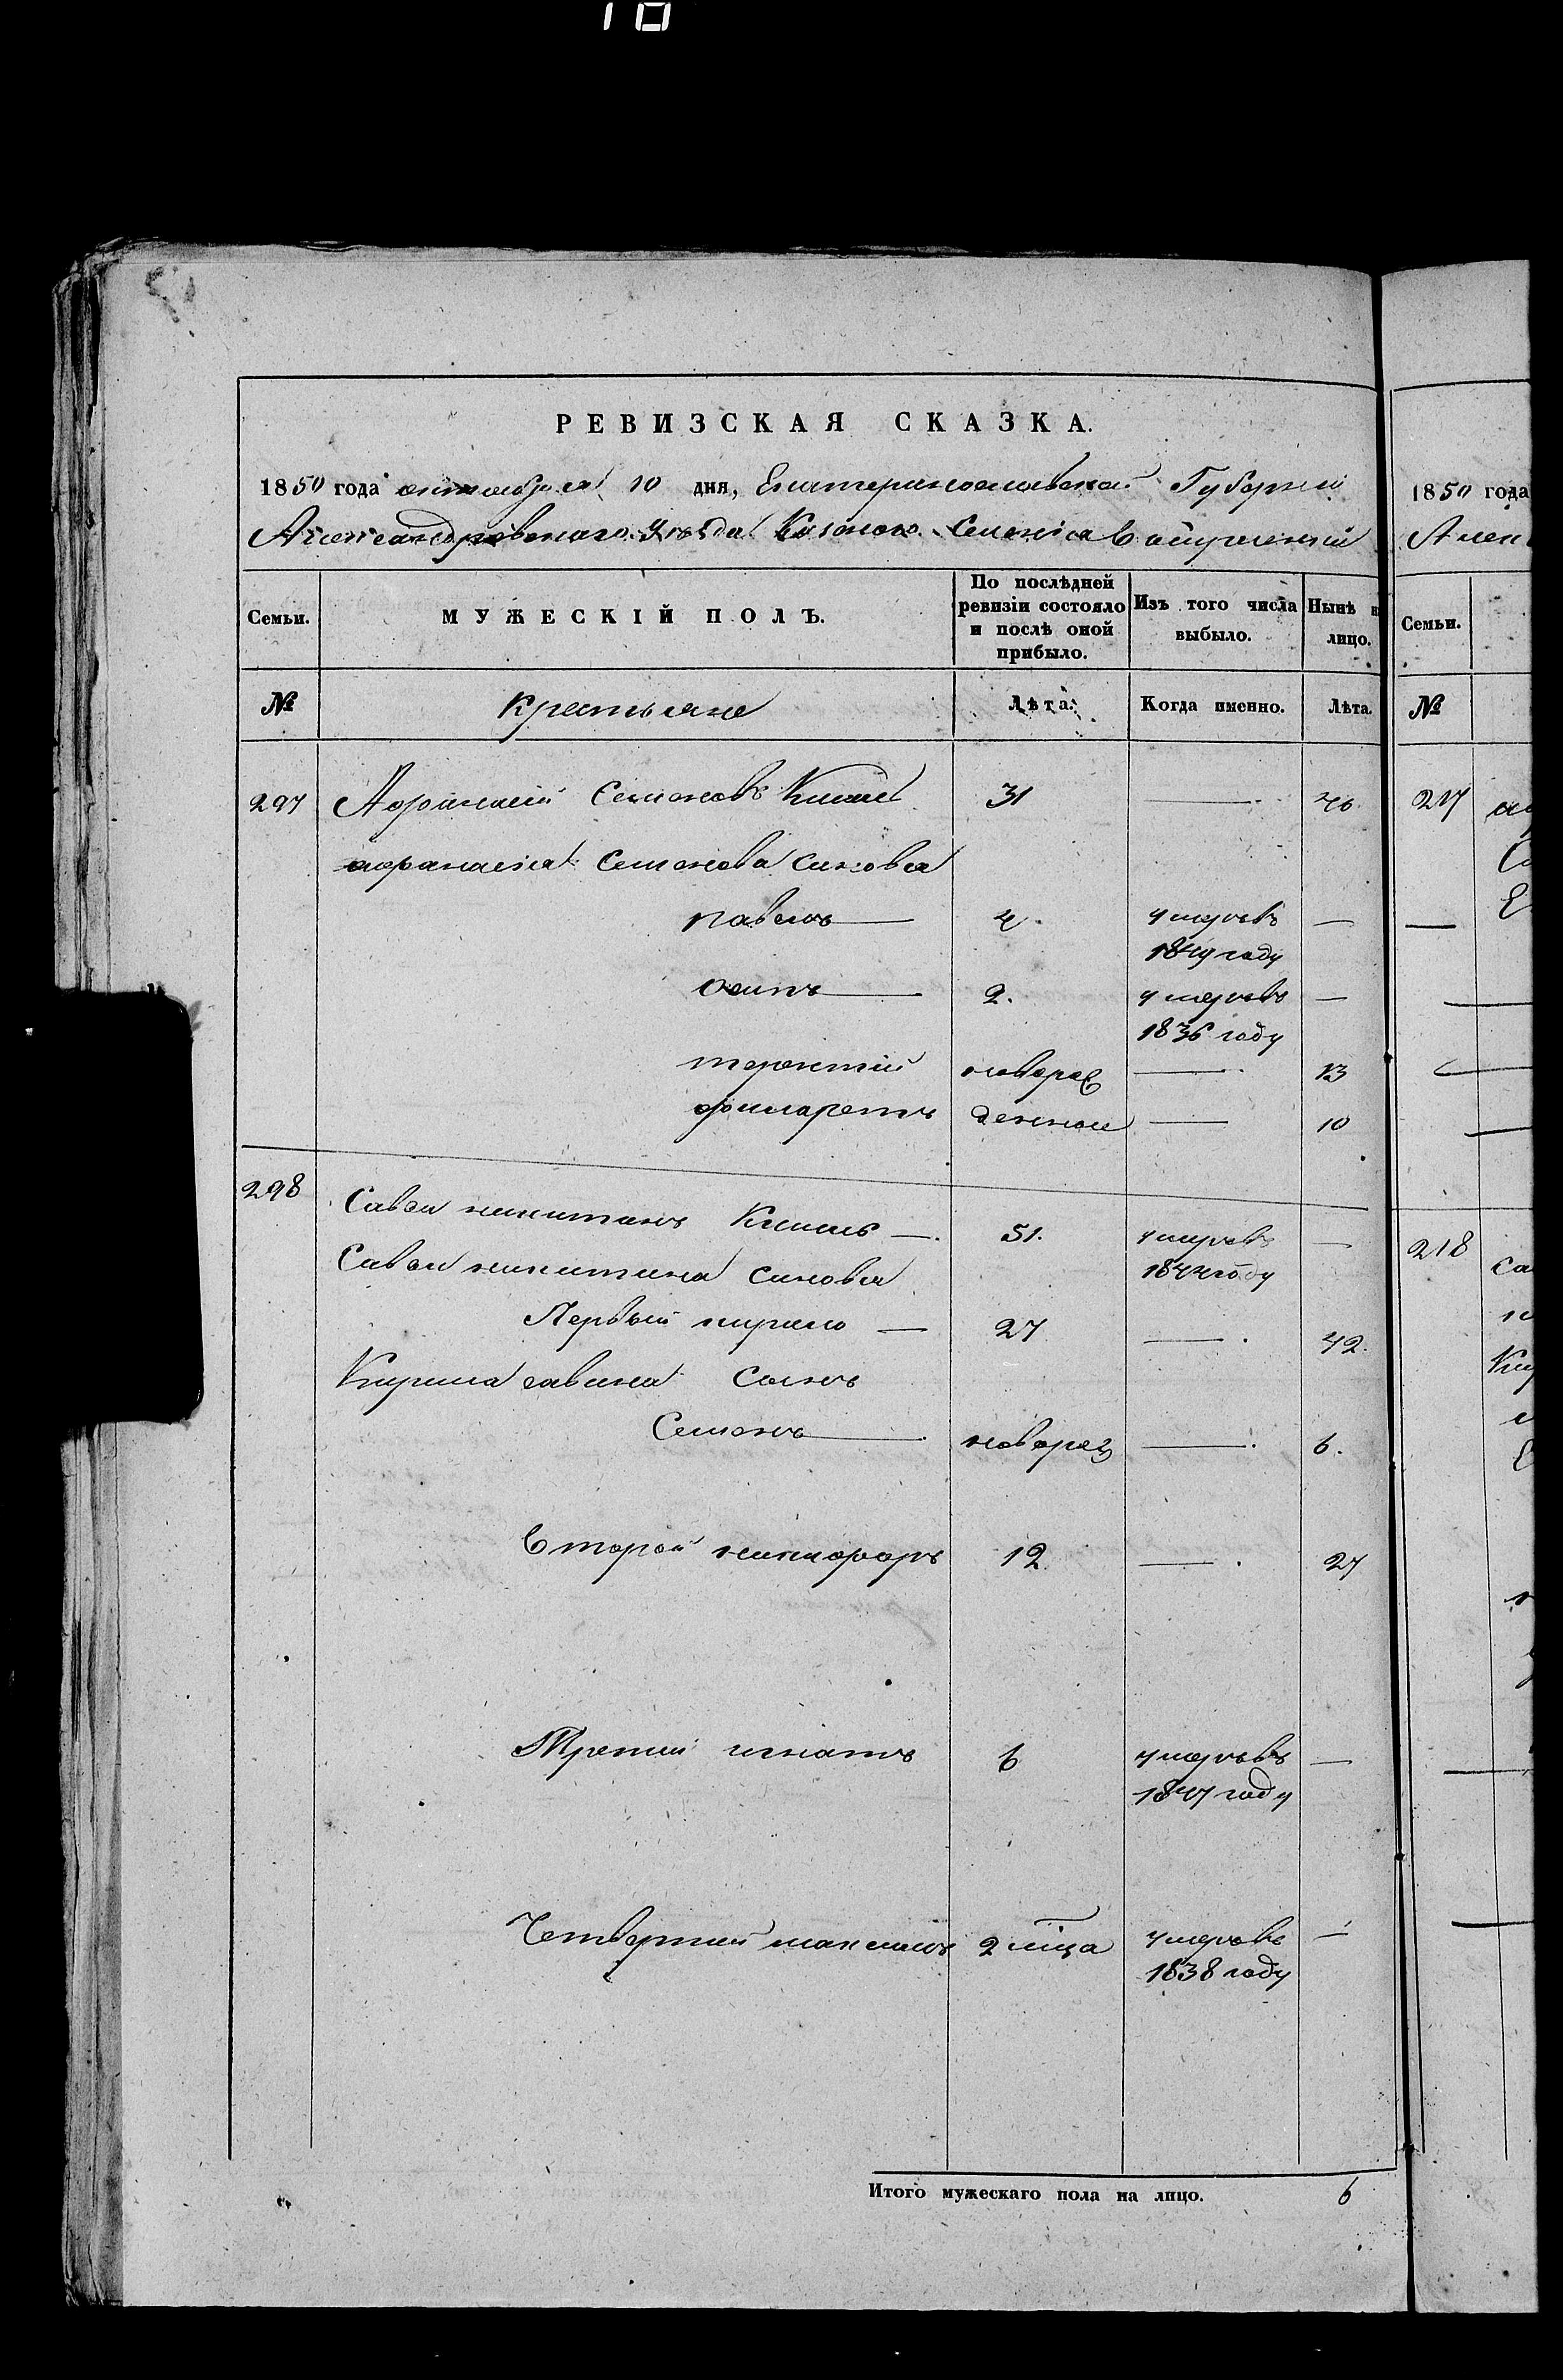 10
РЕВИЗСКАЯ СКАЗКА.
1850 года октоября 10 дня, Екатеринославской Губерніи
Александровскаго Уезда Казеного Селенія
Семьи. МУЖЕСКІЙ ПОЛЪ. По послѣдней ревизіи состояло и послѣ оной прибыло. Изъ того числа выбыло. Нынѣ н лицо.
№ Крестьяне Лѣта. Когда именно. Лѣта.
297 Афанасій Семеновъ 31 — 46.
афанасія Семенова синовя
павелъ — 4. умеръ въ —
1849 году
осипъ — 2. умеръ въ —
1836 году
терентий новорож — 13
филаретъ денные — 10
298 Сава никитинъ — 51. умеръ въ —
1844 году
Сави никитина синовя
Первый кирило — 27 — 42.
Кирила савина Сынъ
Семенъ — новорож — 6.
Второй никифоръ 12. — 27
Третий игнатъ 6 умеръ въ —
1847 году
Четвертий максимъ 2 мца умеръ въ —
1838 году
Итого мужескаго пола на лицо. 6
1850 года
Семьи.
№
217
218